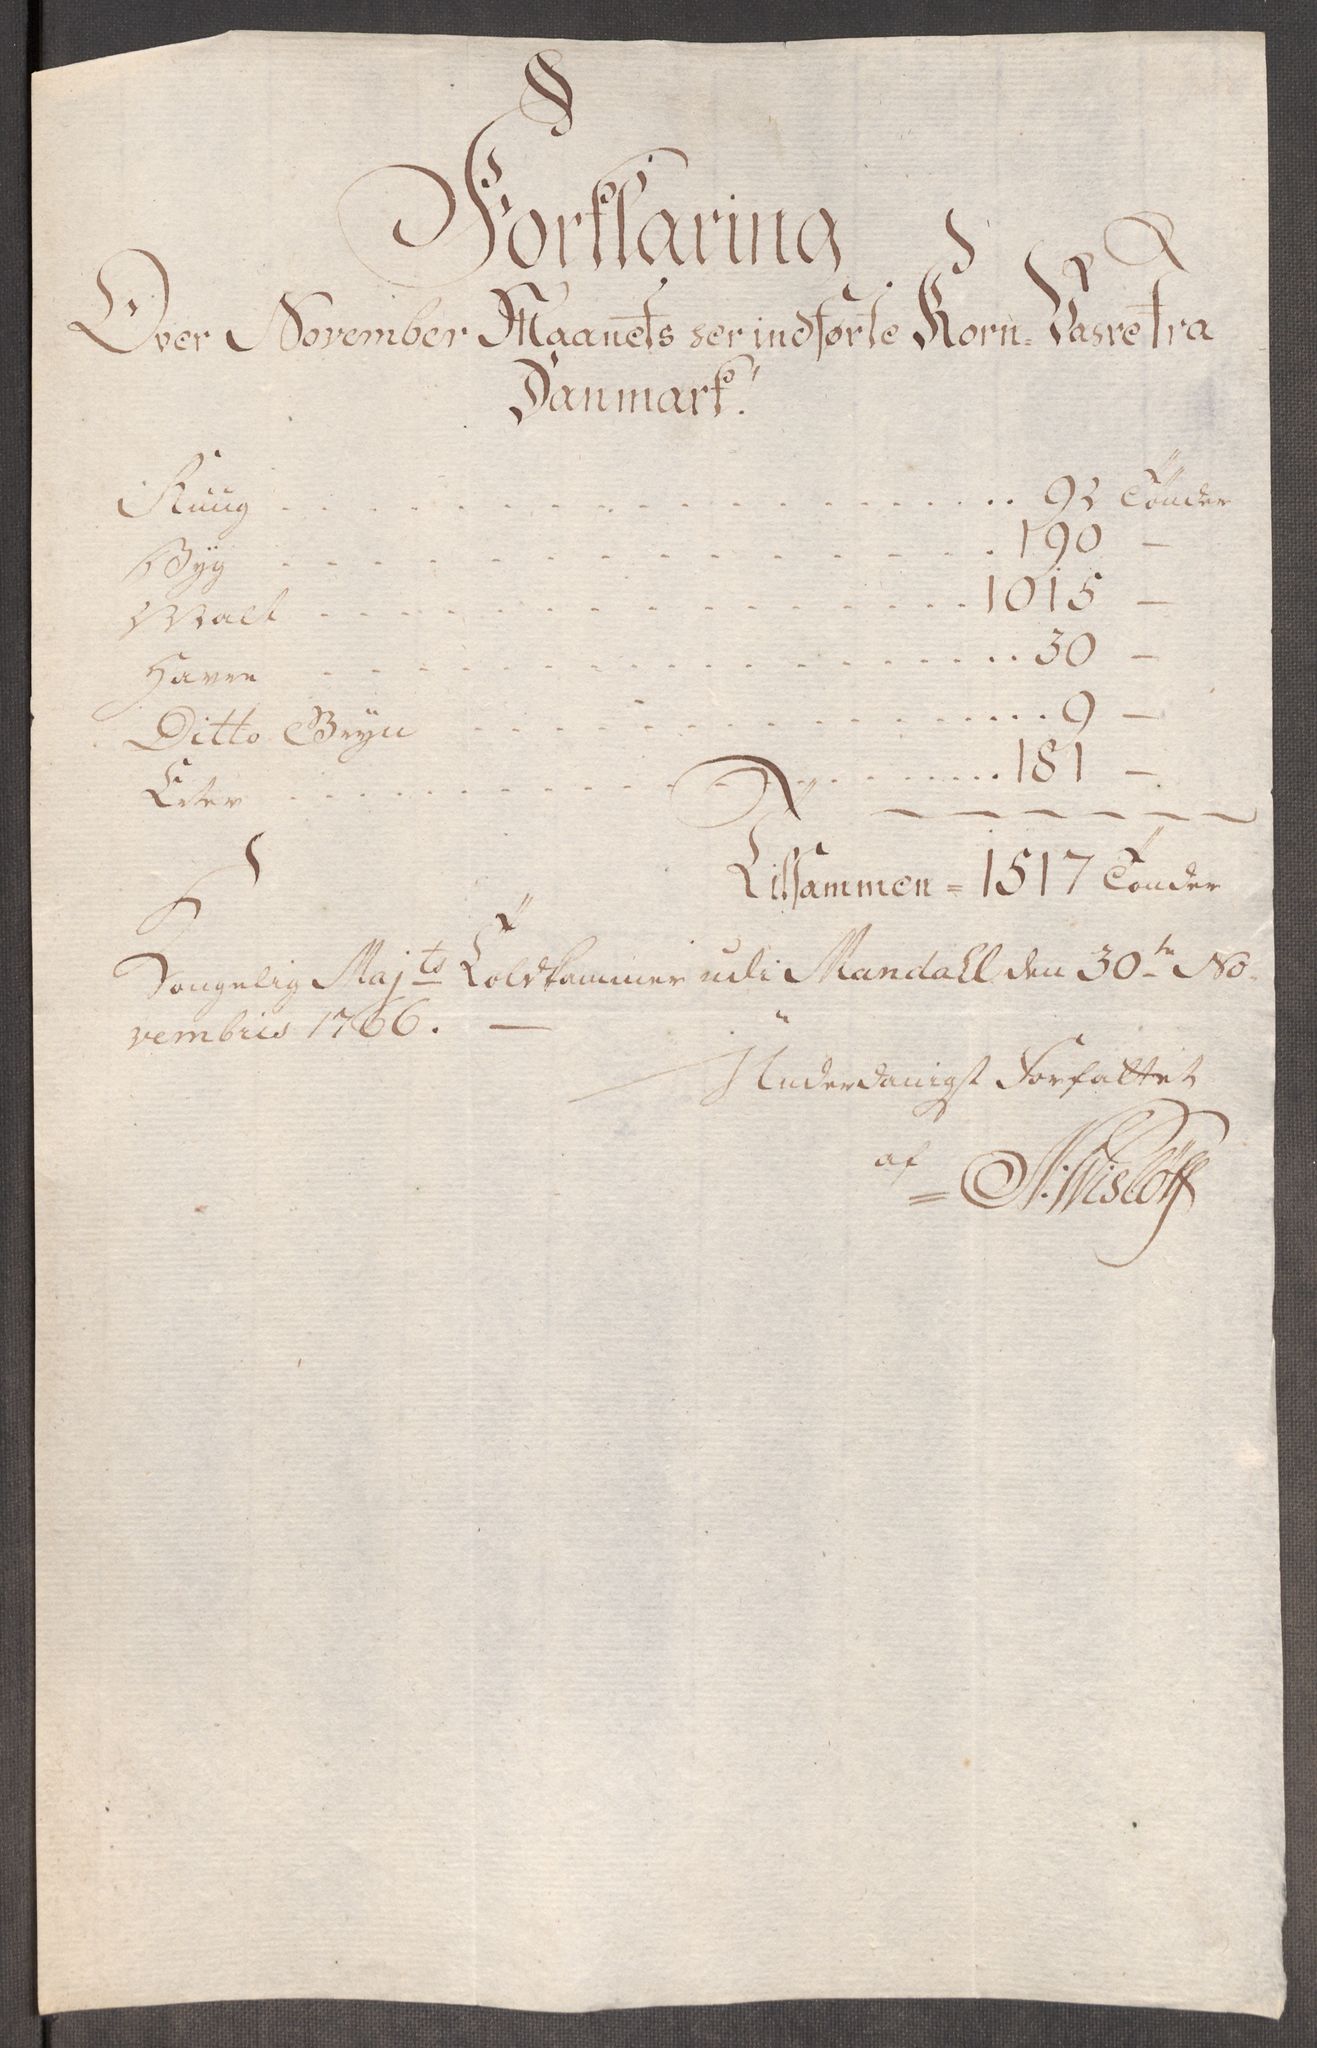 Forklaring
Over November Maanets her indførte Korn-Vahre fra
Danmark.
Ruug . . . . . . 92 Tönder
Byg . . . . . . 190 —
Malt . . . . . . 1015 —
Havre . . . . . . 30 —
Ditto Gryn . . . . . . 9 —
Erter . . . . . . 181 —
Tilsammen = 1517 Tönder
Kongelig Majts Toldkammer udi Mandall den 30te No-
vembris 1766. —
Underdanigst Forfattet
af
= N: Wislöff